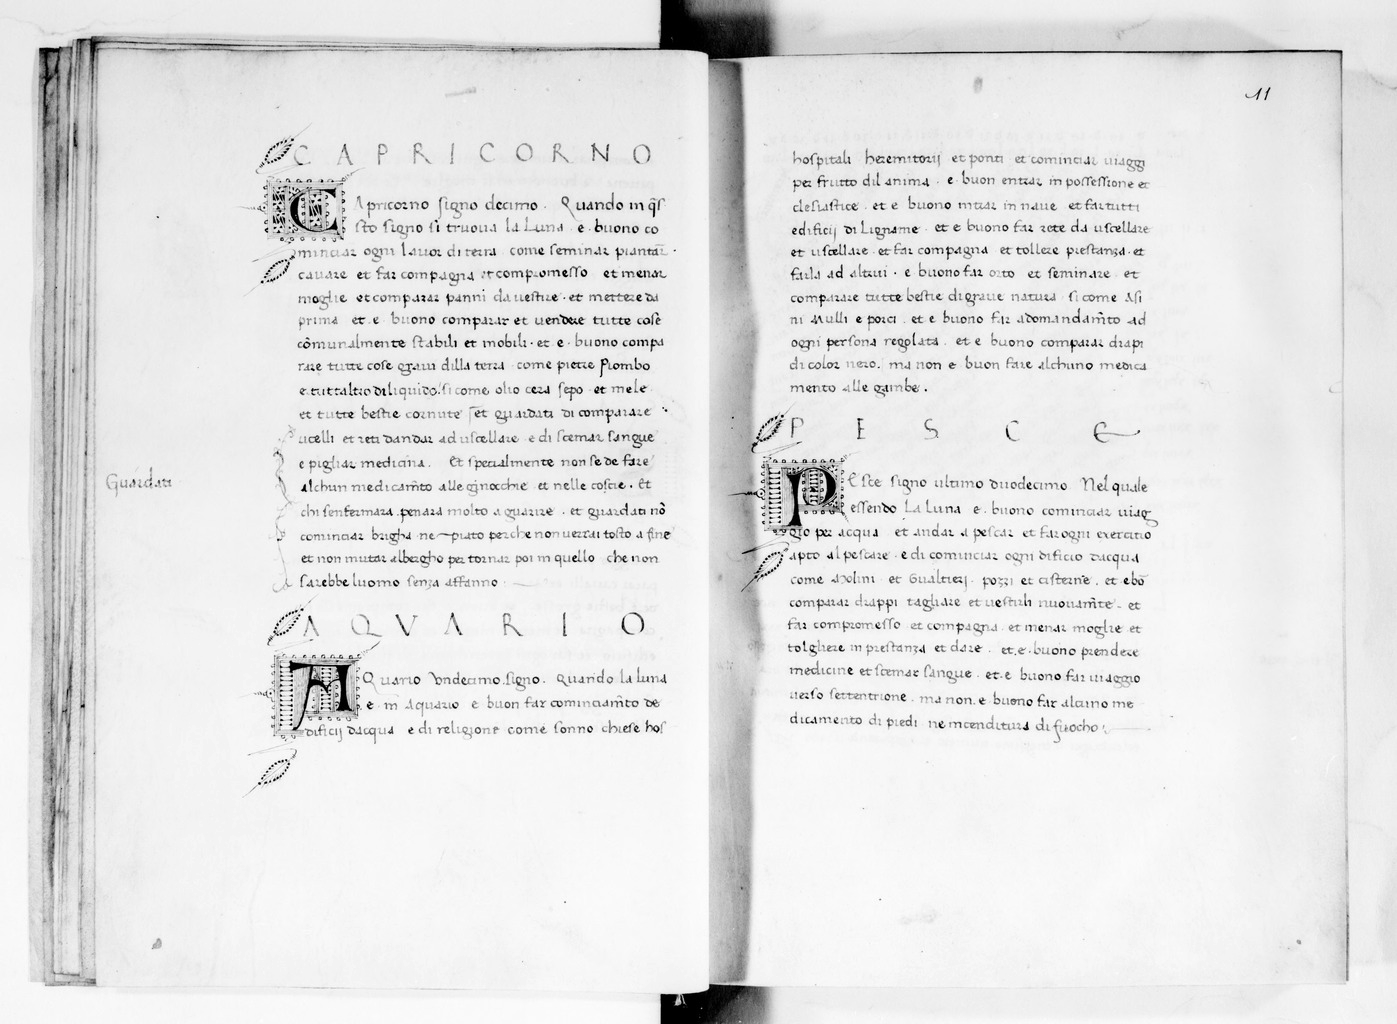 CAPRICORNO
CApricorno signo decimo. Quando in q̃s
sto signo si truova la Luna e buono co
minciar ogni lavor di terra come seminar piantar̃.
cavare et far compagna et compromesso et menar
moglie et comparar panni da vestire. et mettere da
prima et. e. buono comparar et vendere tutte cose
cõmunalmente stabili et mobili. et. e. buono compa
rare tutte cose gravi dilla terra come pietre Piombo
e tuttaltro di liquido. si come olio cera sepo et mele
et tutte bestie cornute et guardati di comparare
ucelli et reti dandar ad uscellare e di scemar sangue
e pigliar medicina. Et specialmente non se de fare
alchun medicam̃to alle ginocchie et nelle coscie. Et
chi senfermara penara molto a guarire. et guardati nõ
cominciar brigha ne piato perche non verrai tosto a fine
et non mutar albergho per tornar poi in quello che non
sarebbe luomo senza affanno:
Guardati
AQVARIO
AQuario Vndecimo signo. Quando la luna
e in Aquario e buon far cominciam̃to de
dificij dacqua e di religione come sonno chiese hos
11
hospitali heremitorij et ponti et cominciar viaggi
per frutto dil anima. e buon entrar in possessione et
clesiastice. et e buono intrar in nave et far tutti
edificij di Ligname. et e buono far rete da uscellare
et uscellare. et far compagna et tollere prestanza. et
farla ad altrui. e buono far orto et seminare. et
comparare tutte bestie di grave natura si come Asi
ni Mulli e porci. et e buono far adomandam̃to ad
ogni persona regolata. et e buono comparar drapi
di color nero. ma non e buon fare alchuno medica
mento alle gambe.
PESCE
PEste signo ultimo duodecimo Nel quale
essendo La luna e buono cominciar viag
gio per acqua et andar a pescar et far ogni exercitio
apto al pescare e di cominciar ogni dificio dacqua
come Molini et Gualtieri pozzi et cisterne. et e bõ
comparar drappi tagliare et vestirli nuovam̃te et
far compromesso et compagna et menar moglie et
tolghere in prestanza et dare. et. e. buono prendere
medicine et scemar sangue. et. e buono far viaggio
verso settentrione. ma non. e buono far alcuno me
dicamento di piedi ne incenditura di fuocho: